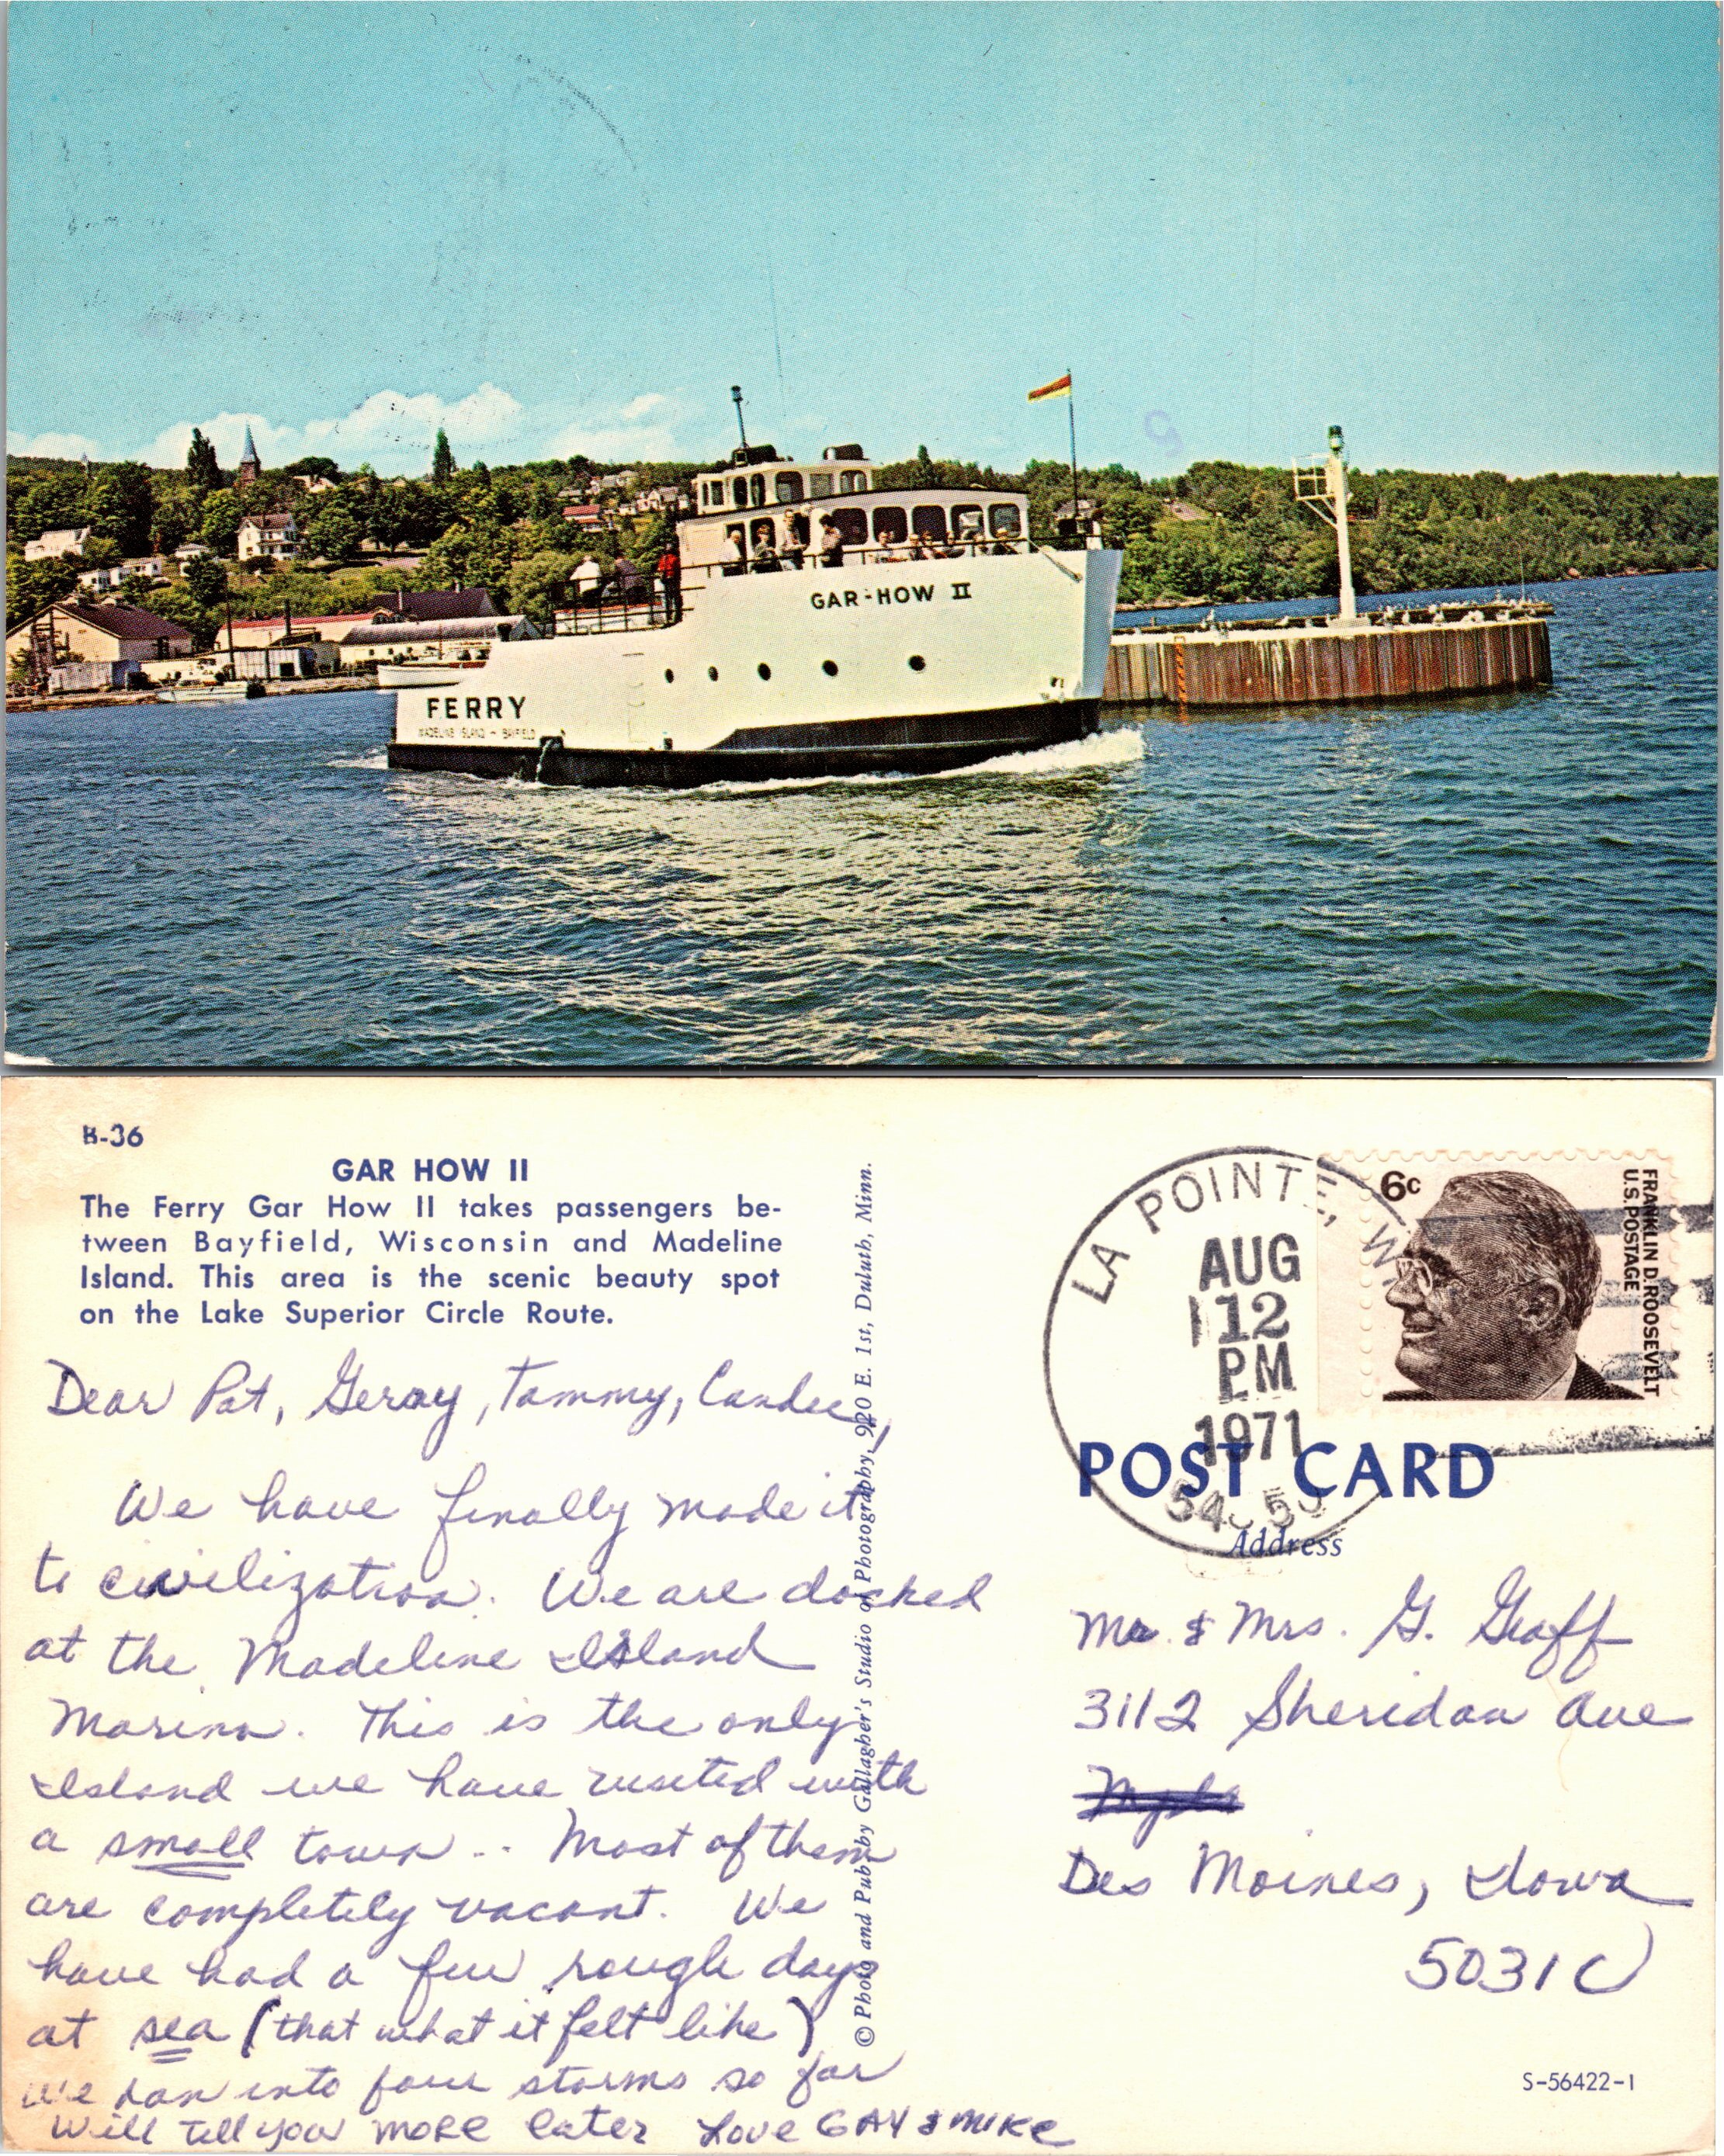 GAR-HOW II
FERRY
MADELINE ISLAND - BAYFIELD
B-36
GAR HOW II
The Ferry Gar How II takes passengers be-
tween Bayfield, Wisconsin and Madeline
Island. This area is the scenic beauty spot
on the Lake Superior Circle Route.
Dear Pat, Gerry, Tammy, Candee,
We have finally made it
to civilization. We are docked
at the Madeline Island
Marina. This is the only
Island we have visited with
a small town.. Most of them
are completely vacant. We
have had a few rough days
at sea (that what it felt like)
We ran into four storms so far
Will tell you more later Love GAY & MIKE
© Photo and Pub. by Gallagher's Studio of Photography, 920 E. 1st, Duluth, Minn.
LA POINTE, W
AUG
12
PM
1971
6c
FRANKLIN D. ROOSEVELT
U.S. POSTAGE
POST CARD
Address
Mr. & Mrs. G. Graff
3112 Sheridan Ave
Des Moines, Iowa
50310
S-56422-1